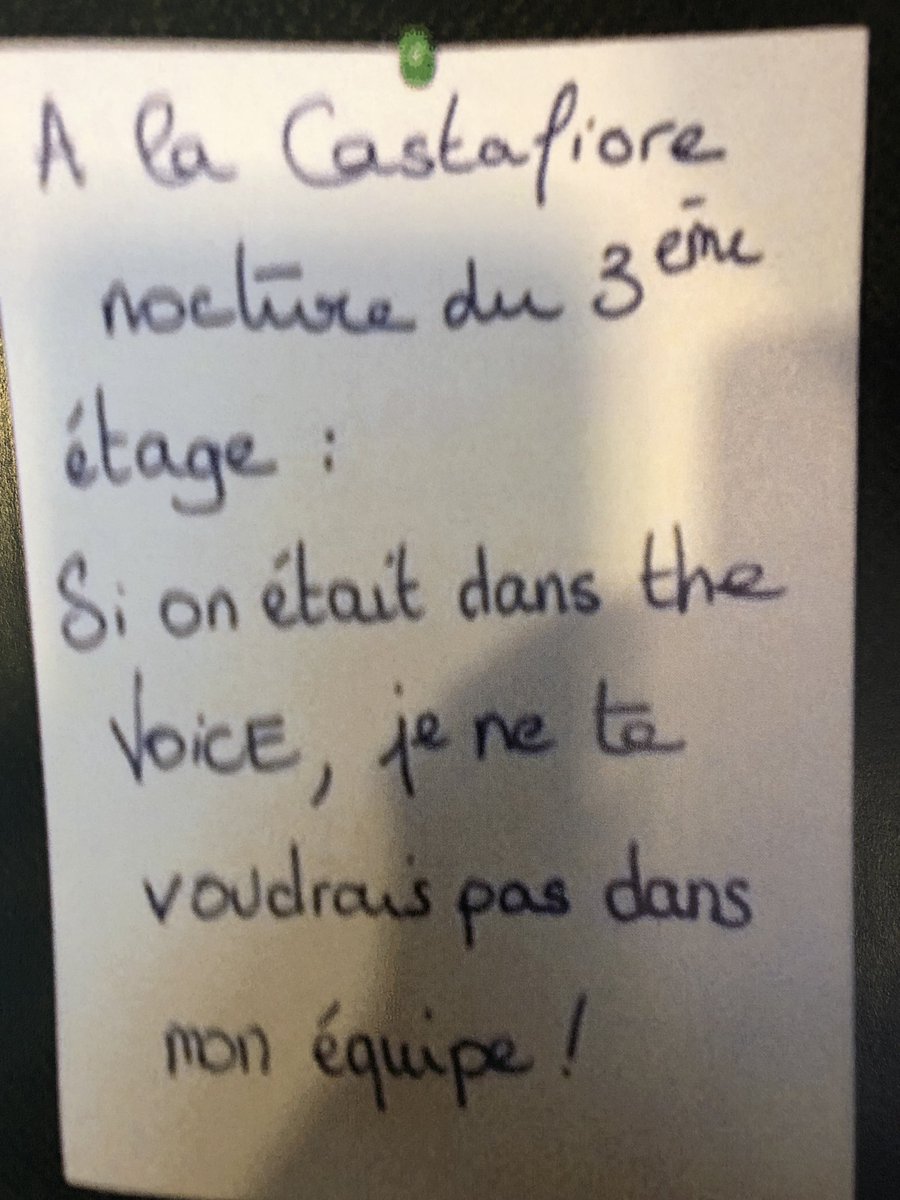 A la Castafiore
noctūre du 3ème
étage :
Si on était dans the
VOICE, je ne te
voudrais pas dans
mon équipe !